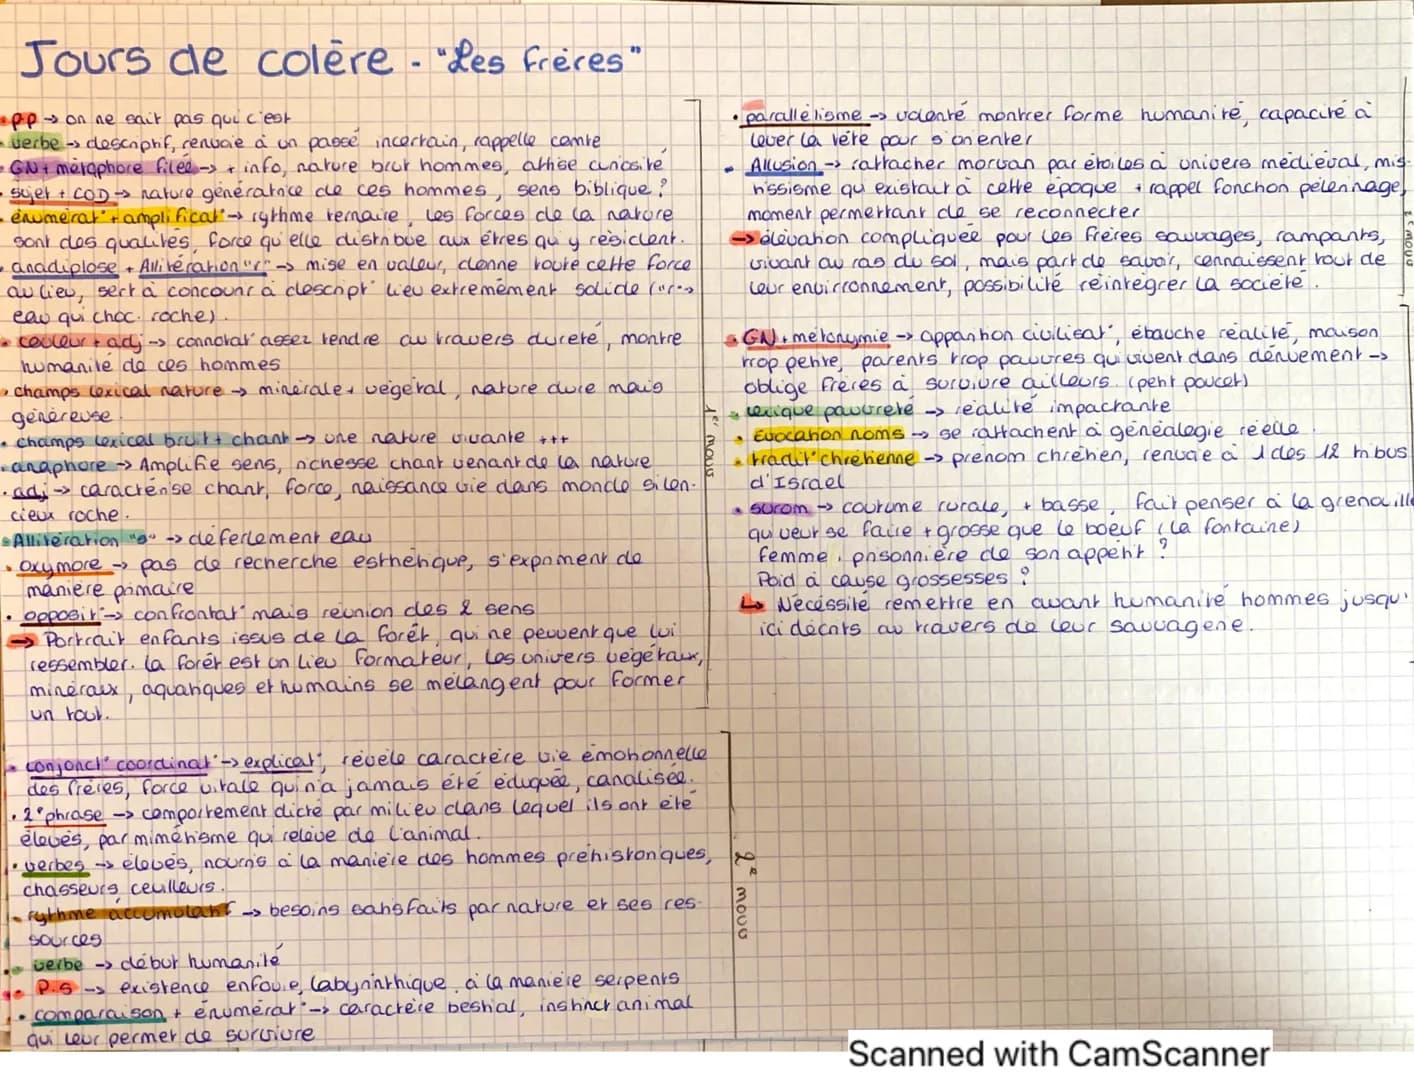 Jours de colère - "Les frères"
• PP → on ne sait pas qui c'est
• verbe → descriptif, renvoie à un passé incertain, rappelle conte
• GN + métaphore filée → + info, nature brut hommes, attise curiosité
• sujet + COD → nature génératrice de ces hommes, sens biblique ?
• énumérat° + amplificat° → rythme ternaire, les forces de la nature
sont des qualités, force qu'elle distribue aux êtres qui y résident.
• anadiplose + Allitération "r" → mise en valeur, donne toute cette force
au lieu, sert à concourir à descript° lieu extrêmement solide ("r" →
eau qui choc. roche).
• couleur + adj → connotat° assez tendre au travers dureté, montre
humanité de ces hommes
• champs lexical nature → minérale + végétal, nature dure mais
généreuse.
• champs lexical bruit + chant → une nature vivante +++
• anaphore → Amplifie sens, richesse chant venant de la nature
• adj → caractérise chant, force, naissance vie dans monde silen-
cieux roche.
• Allitération "s" → déferlement eau
• oxymore → pas de recherche esthétique, s'expriment de
manière primaire
• opposit° → confrontat° mais réunion des 2 sens
→ Portrait enfants issus de la forêt, qui ne peuvent que lui
ressembler. la forêt est un lieu formateur, les univers végétaux,
minéraux, aquatiques et humains se mélangent pour former
un tout.
1er mouv
• conjonct° coordinat° → explicat°, révèle caractère vie émotionnelle
des frères, force vitale qui n'a jamais été éduquée, canalisée.
• 2e phrase → comportement dicté par milieu dans lequel ils ont été
élevés, par mimétisme qui relève de l'animal.
• verbes → élevés, nourris à la manière des hommes préhistoriques,
chasseurs, ceuilleurs.
• rythme accumulatif → besoins satisfaits par nature et ses res-
sources
• verbe → début humanité
• P.S → existence enfouie, labyrinthique, à la manière serpents
• comparaison + énumérat° → caractère bestial, instinct animal
qui leur permet de survivre
2e mouv
• parallèlisme → volonté montrer forme humanité, capacité à
lever la tête pour s'orienter
• Allusion → rattacher morvan par étoiles à univers médiéval, mis-
tissisme qui existait à cette époque + rappel fonction pèlerinage,
moment permettant de se reconnecter
→ élévation compliquée pour les frères sauvages, rampants,
vivant au ras du sol, mais part de savoir, connaissent tout de
leur envirronnement, possibilité réintégrer la société.
2e mouv
• GN + métonymie → apparition civilisat°, ébauche réalité, maison
trop petite, parents trop pauvres qui vivent dans dénuement →
oblige frères à survivre ailleurs. (petit poucet)
• lexique pauvreté → réalité impactante
• Évocation noms → se rattachent à généalogie réelle.
• tradit° chrétienne → prénom chrétien, renvoie à 1 des 12 tribus
d'Israël
• surom → coutume rurale, + basse, fait penser à la grenouille
qui veut se faire + grosse que le boeuf (la fontaine)
femme, prisonnière de son appétit ?
Poid à cause grossesses ?
↳ Nécéssité remettre en avant humanité hommes jusqu'
ici décrits au travers de leur sauvagerie.
Scanned with CamScanner